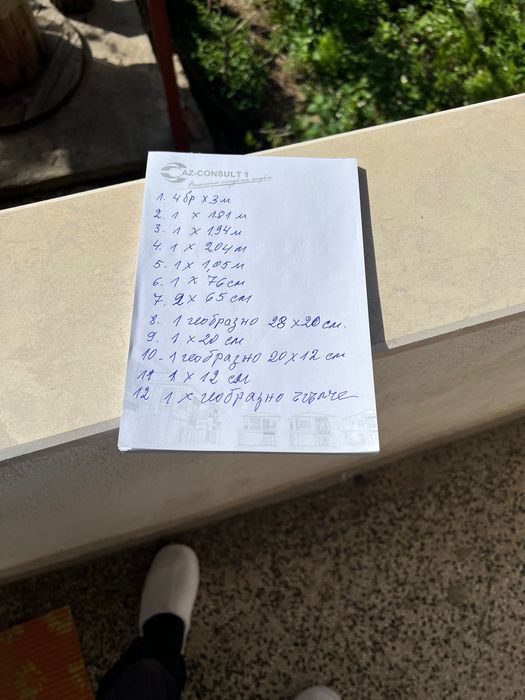 AZ-CONSULT 1
1. 4бр х 3м
2. 1 х 181 м
3. 1 х 194м
4. 1 х 204м
5. 1 х 1,05м
6. 1 х 76см
7. 2 х 65 см
8. 1 геобразно 28 х 20см.
9. 1 х 20 см
10. 1 геобразно 20 х 12 см
11 1 х 12 см
12 1 х геобразно